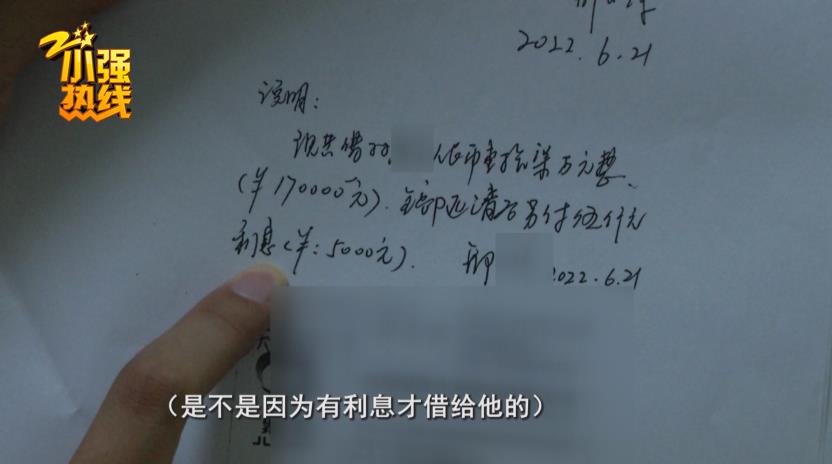 2022.6.21
小强
热线
说明：
现共借对 人民币壹拾柒万元整、
(￥170000元). 全部还清后另付伍仟元
利息(￥:5000元). 邢 2022.6.21
（是不是因为有利息才借给他的）